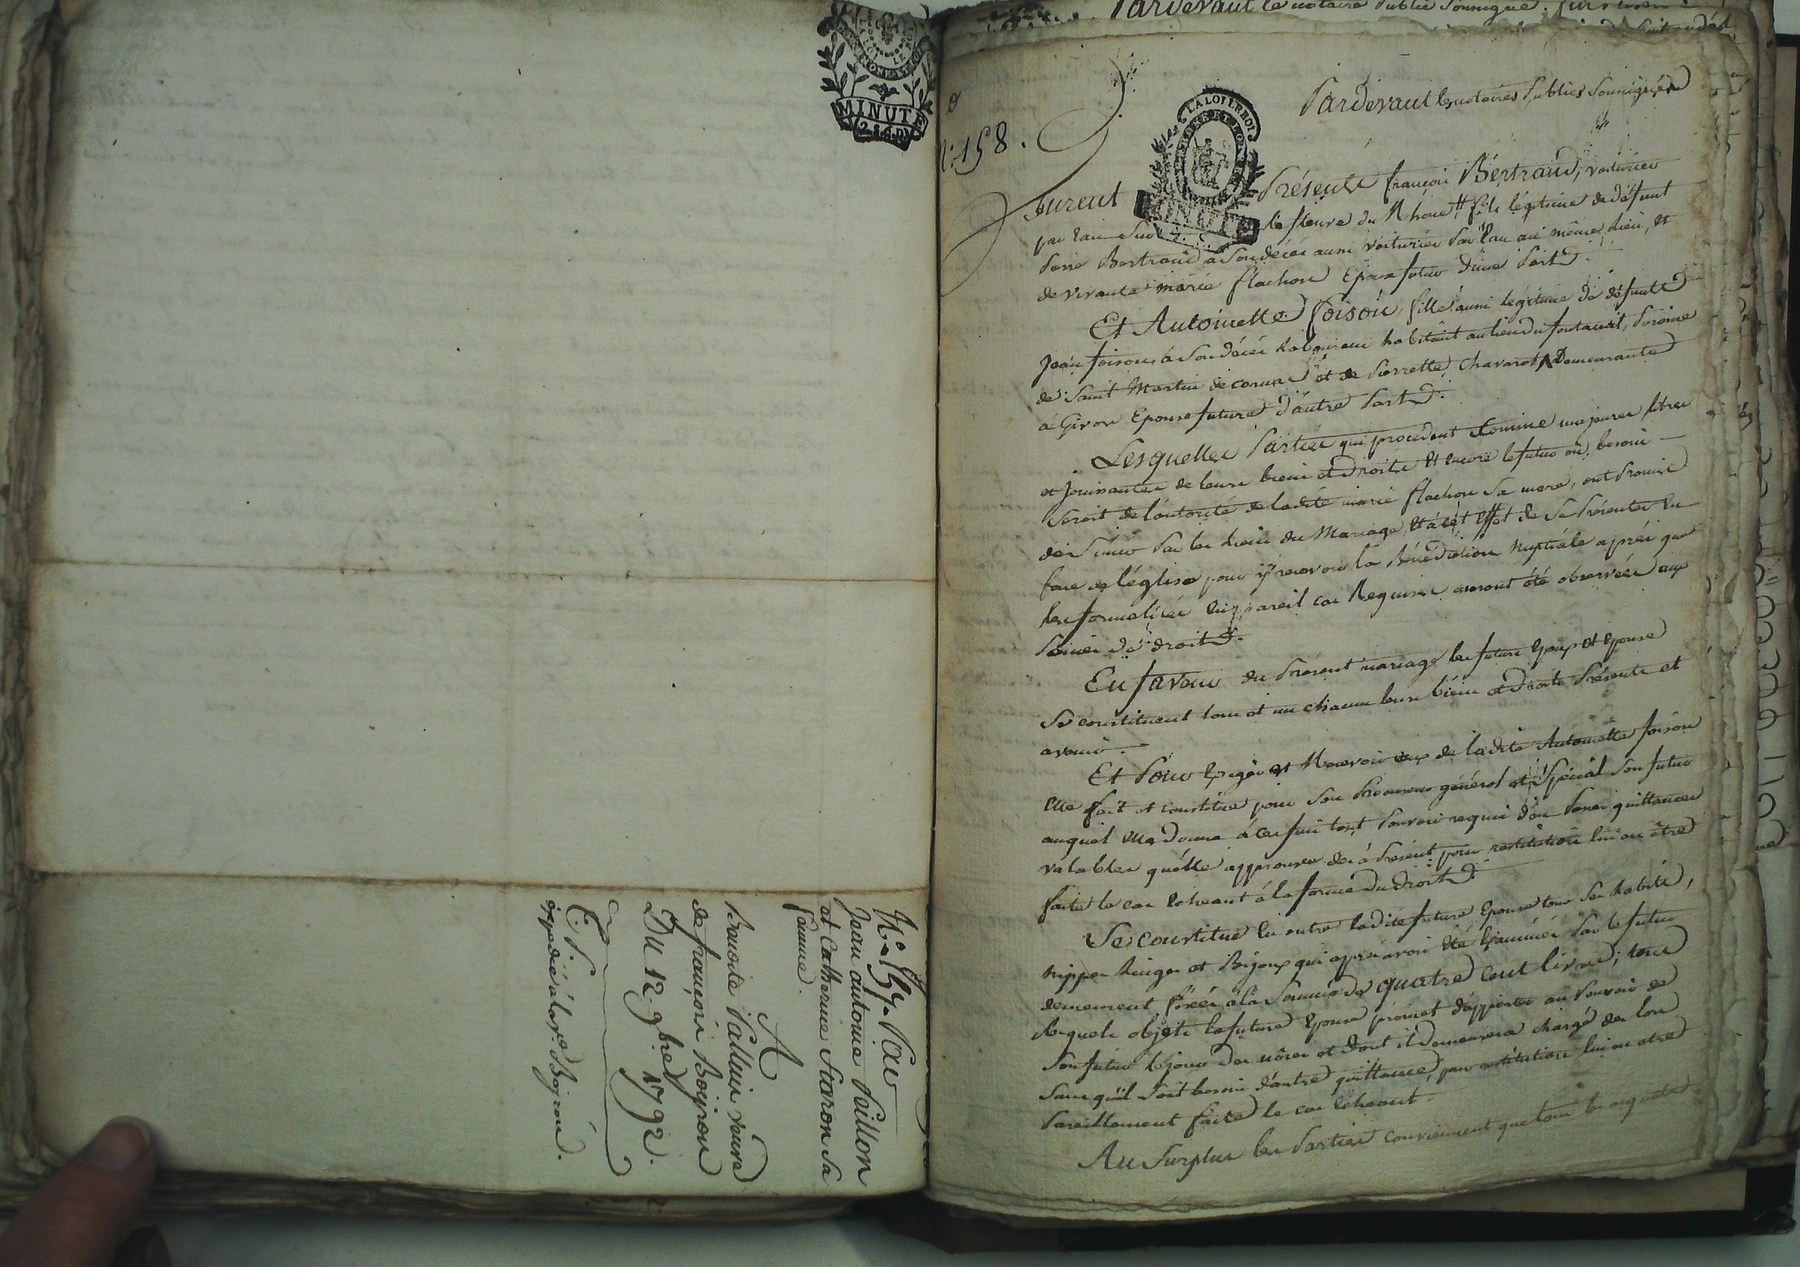 MINUTE
(2 S. 6 D)
N.° 157. Par
Jean antoine Peillon
et Catherine Staron sa
femme.
A
Benoite Palluix veuve
de françois Boiyron
Du 12. 9bre 1792.
E. P.
expedié à la Ve Boyron.
Pardevant le notaire Public Soussigné
158.
Pardevant les notaires Publics Soussignés
LA LOI LE ROI
MINUTE
furent Présents françois Bertrand, voiturier
par eau sur le fleuve du Rhone fils légitime de défunt
Pierre Bertrand à son décès aussi voiturier Par Eau au même Lieu, et
de vivante marie flachon Epoux futur d'une Part.
Et Antoinette foison, fille aussi légitime de défunt
Jean foison, à son décès Laboureur habitant au lieu du fontanat, Paroisse
de Saint Martin de cornas et de Pierrette Chavarot, Demeurante
à Givors Epouse future d'autre Part.
Lesquelles Parties qui procedent Comme majeures libres
et Jouissantes de leurs biens et droits Et encore le futur où besoin
seroit de l'autorité de ladite marie flachon sa mere, ont Promis
de s'unir Par les liens du Mariage, Et à cet Effet de se Présenter En
face de l'église pour y recevoir la Bénédiction Nuptiale après que
les formalités En pareil cas Requises auront été observées aux
Peines de droit.
En faveur du Présent mariage les futurs Epoux et Epouse
Se constituent tous et un chacun leurs biens et Droits Présents et
avenir.
Et Pour Exiger et Recevoir ceux de ladite Antoinette foison
Elle fait et constitue pour son Procureur général et Spécial son futur
auquel Elle Donne à ces fins tout Pouvoir requis d'en Passer quittances
valables qu'elle approuve dès à Présent pour restitution lui en être
faite le cas Echeant à la forme du droit.
Se constitue En outre ladite future Epouse tous ses habits,
nippes Linges et Bijoux qui après avoir été Examinés Par le futur
demeurent fixés à la Somme de quatre cent livres; tous
lesquels objets la future Epouse promet d'apporter au Pouvoir de
son futur le jour des nôces et dont il demeurera chargé dès lors
sans qu'il soit besoin d'autre quittance, pour restitution lui en etre
Pareillement faite le cas Echeant.
Au Surplus les Parties conviennent que tous les acquets